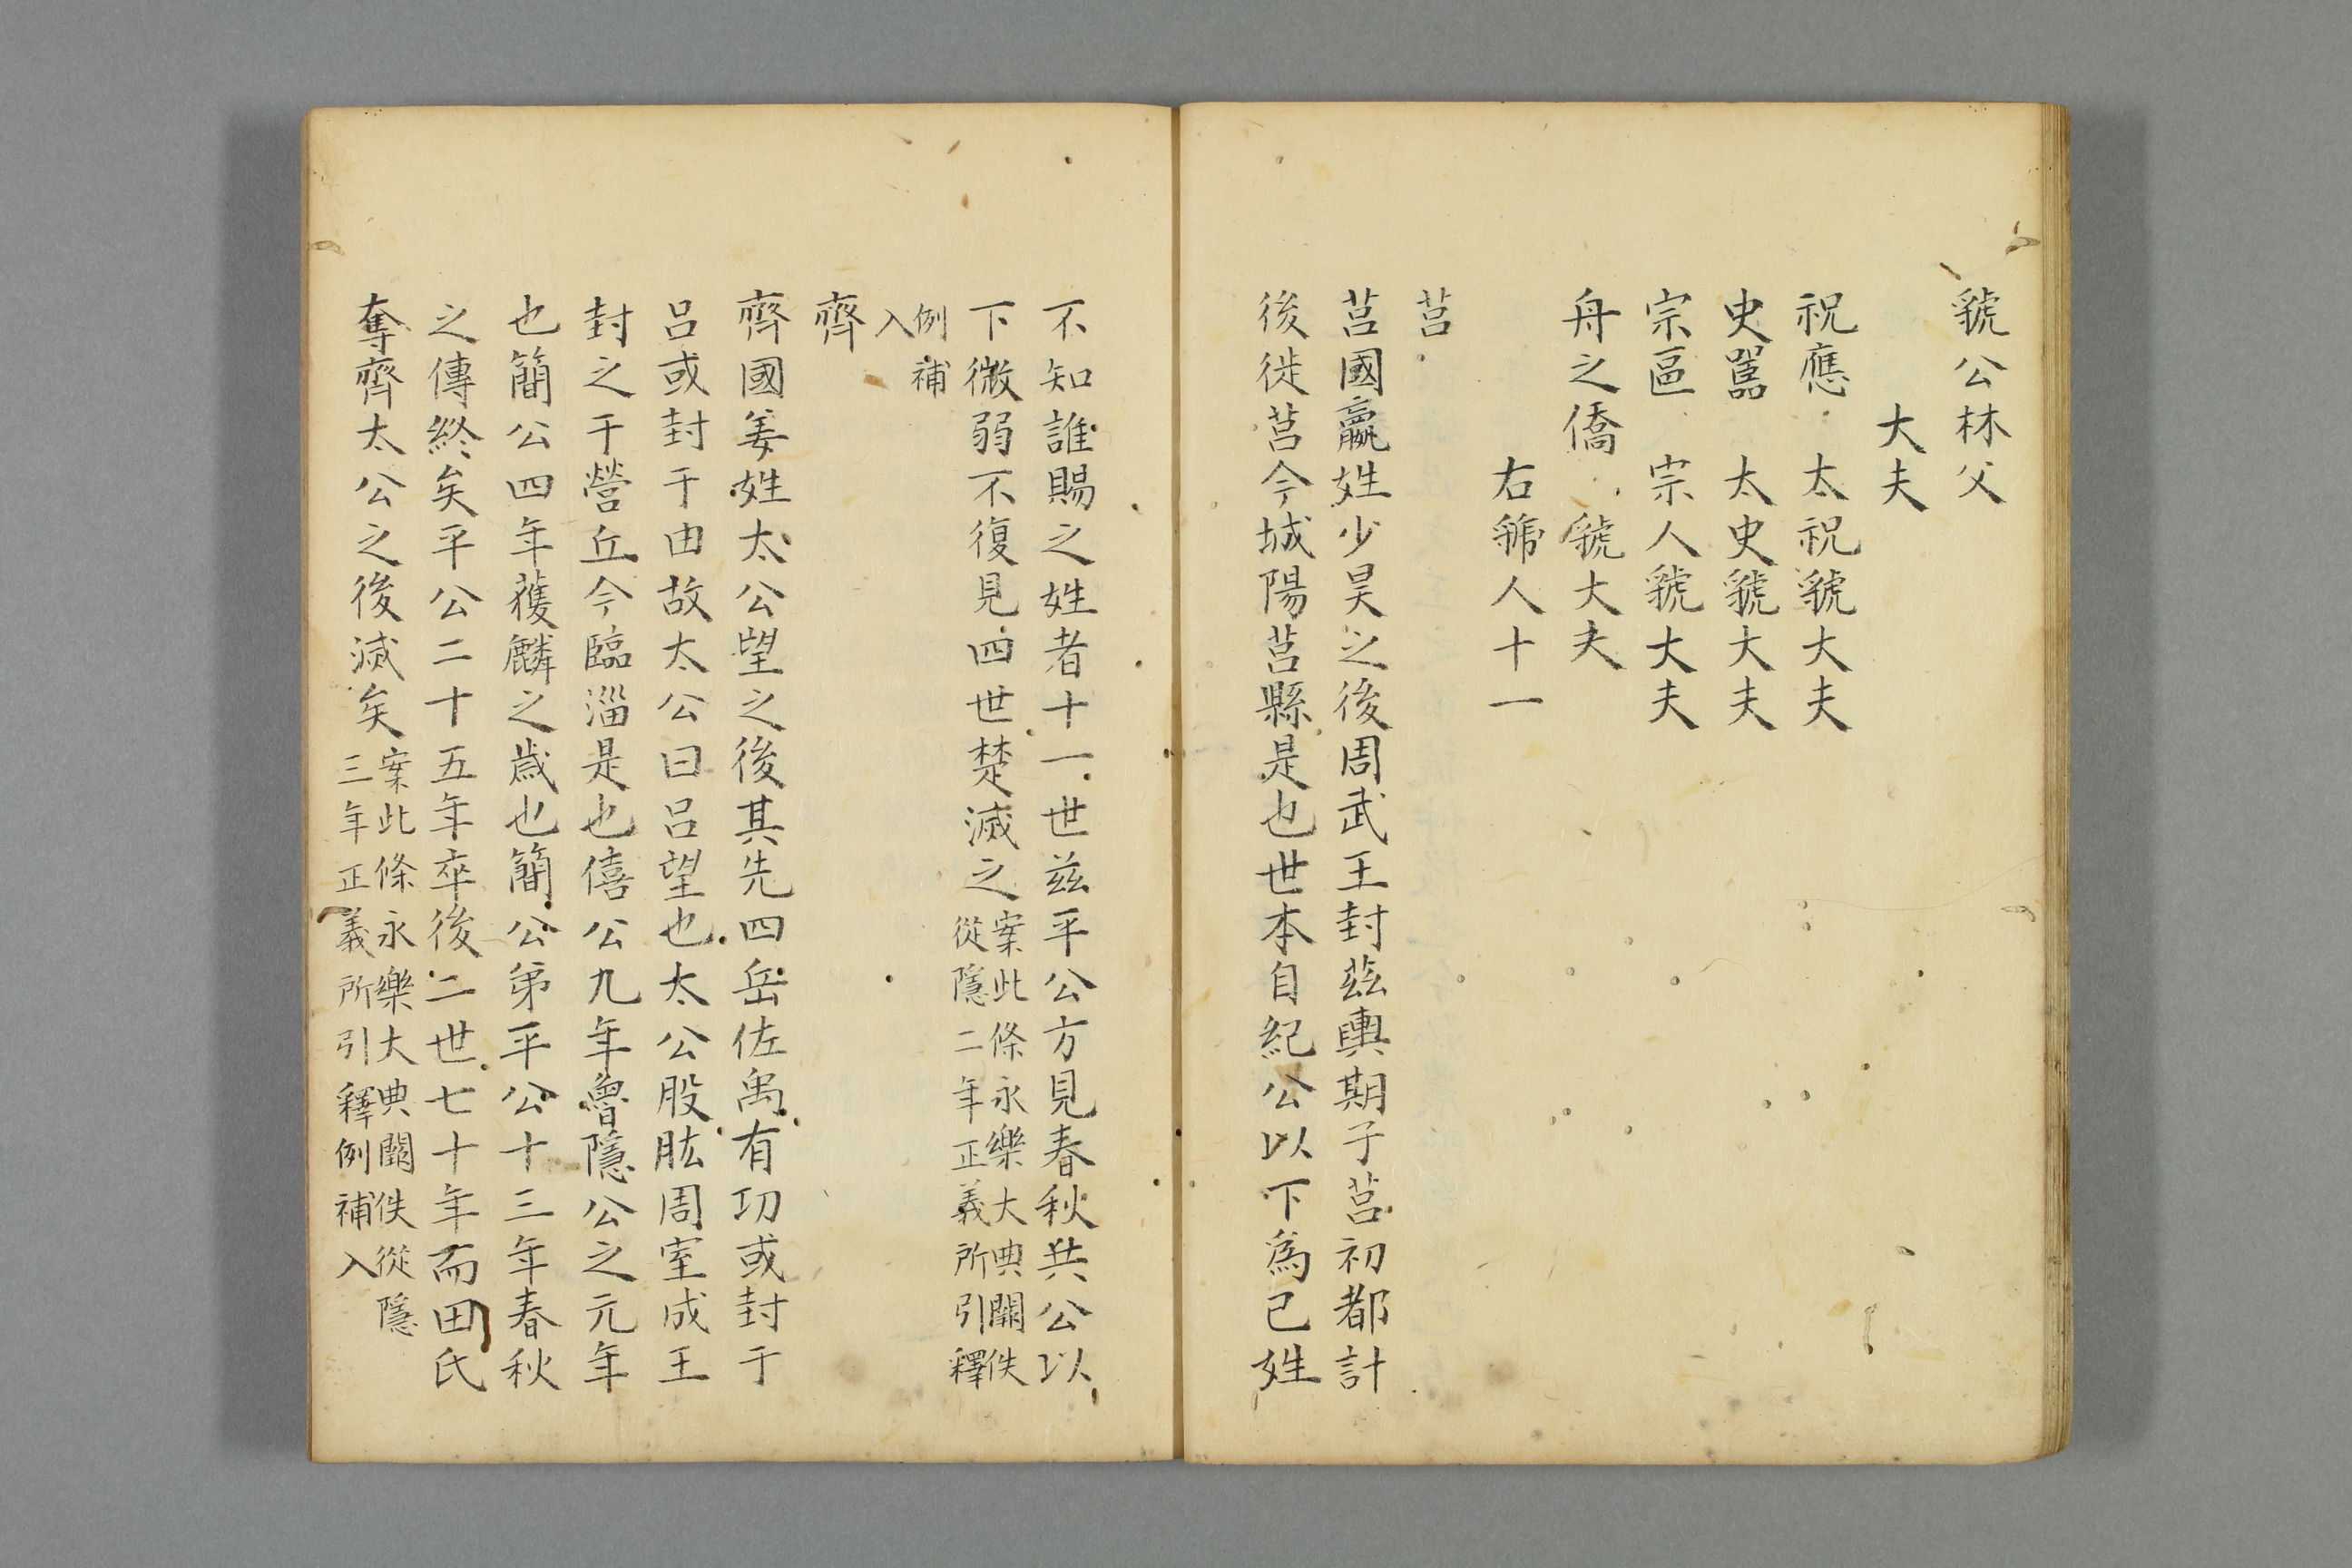 虢公林父
大夫
祝應　太祝虢大夫
史嚚　太史虢大夫
宗區　宗人虢大夫
舟之僑　虢大夫
右虢人十一
莒
莒國嬴姓少昊之後周武王封茲輿期于莒初都計
後徙莒今城陽莒縣是也世本自紀公以下為己姓
不知誰賜之姓者十一世茲平公方見春秋共公以
下微弱不復見四世楚滅之案此條永樂大典闕佚
從隱二年正義所引釋
例補
入
齊
齊國姜姓太公望之後其先四岳佐禹有功或封于
呂或封于申故太公曰呂望也太公股肱周室成王
封之于營丘今臨淄是也僖公九年魯隱公之元年
也簡公四年獲麟之歲也簡公弟平公十三年春秋
之傳終矣平公二十五年卒後二世七十年而田氏
奪齊太公之後滅矣案此條永樂大典闕佚從隱
三年正義所引釋例補入